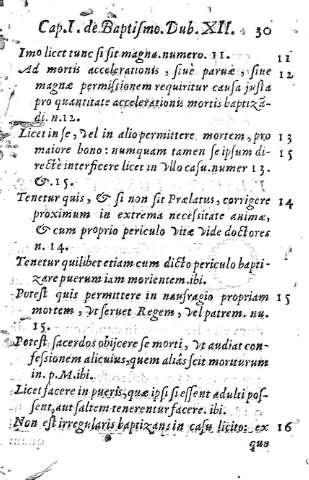 Cap. I. de Baptismo. Dub. XII. 30
Imo licet tunc si sit magna. numero. 11. 11
Ad mortis accelerationis, siue paruæ, siue 12
magnæ permissionem requiritur causa justa
pro quantitate accelerationis mortis baptizã-
di. n. 12.
Licet in se, vel in alio permittere mortem, pro 13
maiore bono: numquam tamen se ipsum di- 15
rectè interficere licet in vllo casu. numer 13.
&. 15.
Tenetur quis, & si non sit Prælatus, corrigere 14
proximum in extrema necessitate animæ,
& cum proprio periculo vitæ vide doctores
n. 14.
Tenetur quilibet etiam cum dicto periculo bapti-
zare puerum iam morientem. ibi.
Potest quis permittere in naufragio propriam 15
mortem, vt seruet Regem, vel patrem. nu.
15.
Potest sacerdos obijcere se morti, vt audiat con-
fessionem alicuius, quem aliàs scit moriturum
in p. M. ibi.
Licet facere in pueris, quæ ipsi si essent adulti pos-
sent, aut saltem tenerentur facere. ibi.
Non est irregularis baptizans in casu licito: ex 16
quo